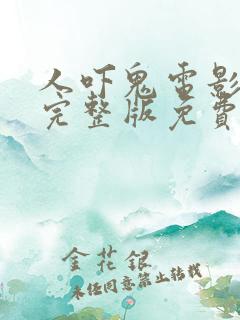 人吓鬼电影
完整版免费
金花银
未经同意禁止转载